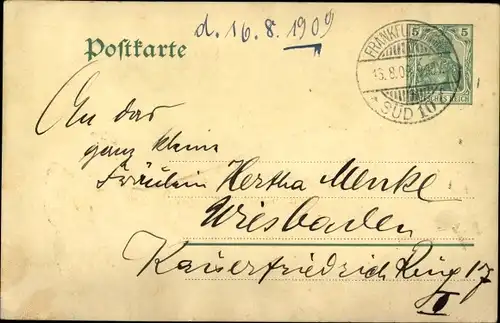 d. 16. 8. 1909
Postkarte
5 5
FRANKFU
16.8.09
SÜD 10
An das
ganz kleine
Fräulein Hertha Menke
Wiesbaden
Kaiserfriedrich Ring 17
I